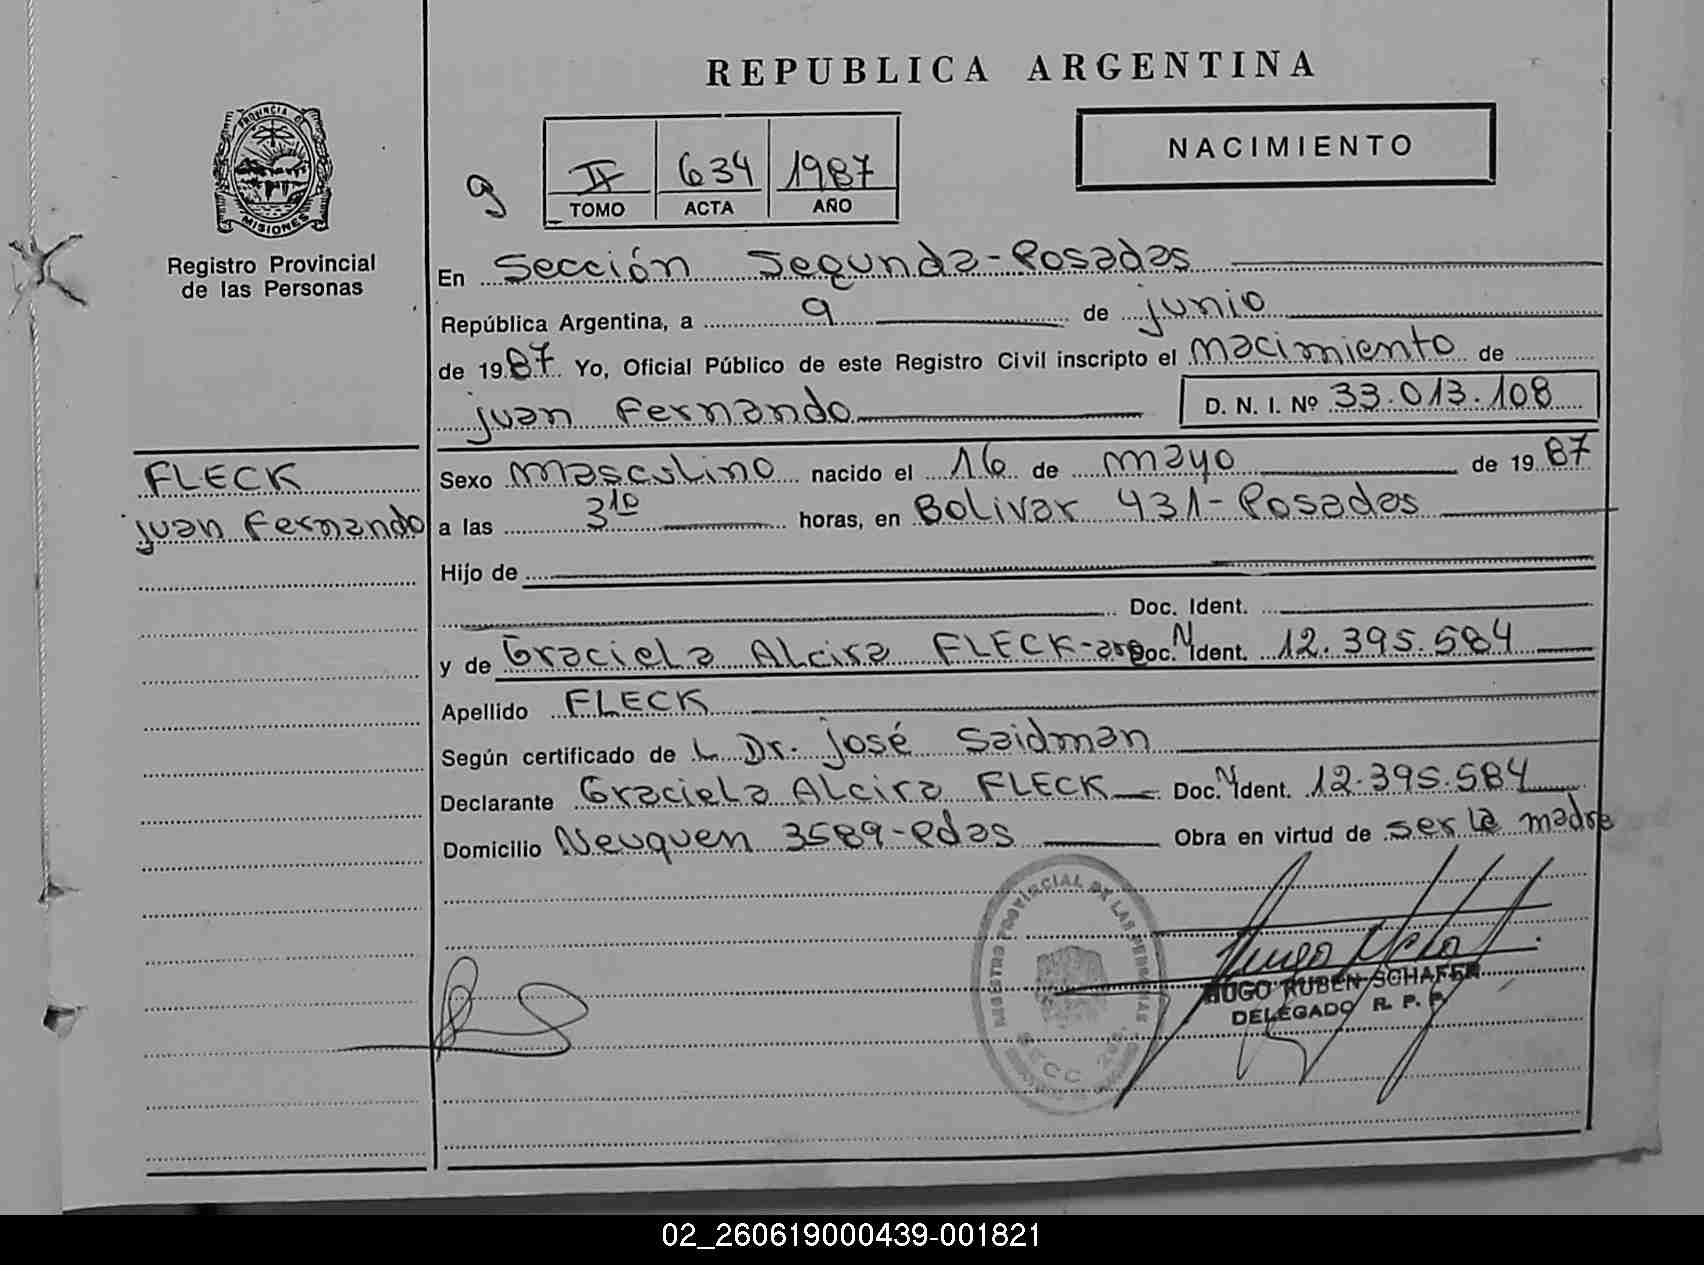 REPUBLICA ARGENTINA
PROVINCIA DE
MISIONES
Registro Provincial
de las Personas
9
II 634 1987
TOMO ACTA AÑO
NACIMIENTO
En Sección Segunda-Posadas
República Argentina, a 9 de junio
de 1987 Yo, Oficial Público de este Registro Civil inscripto el nacimiento de
juan Fernando D. N. I. Nº 33.013.108
FLECK
juan Fernando
Sexo masculino nacido el 16 de mayo de 1987
a las 3 10 horas, en Bolivar 431-Posadas
Hijo de
Doc. Ident.
y de Graciela Alcira FLECK-arg Doc. N Ident. 12.395.584
Apellido FLECK
Según certificado de L Dr. josé Saidman
Declarante Graciela Alcira FLECK Doc. N Ident. 12.395.584
Domicilio Neuquen 3589-Pdas Obra en virtud de ser la madre
REGISTRO PROVINCIAL DE LAS PERSONAS
SECC 2da.
HUGO RUBEN SCHAFER
DELEGADO R. P. P.
02_260619000439-001821